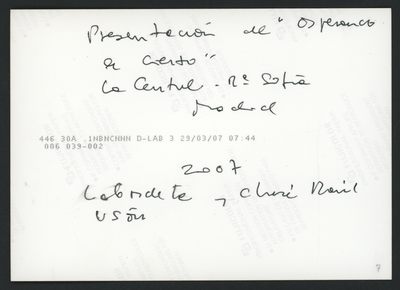 Presentación de "Osperando
a cierzo"
La Central - Mª Sofía
Madrid
446 30A .1NBNCNNN D-LAB 3 29/03/07 07:44
006 039-002
2007
Labordeta y Chusé Raúl
Usón
7